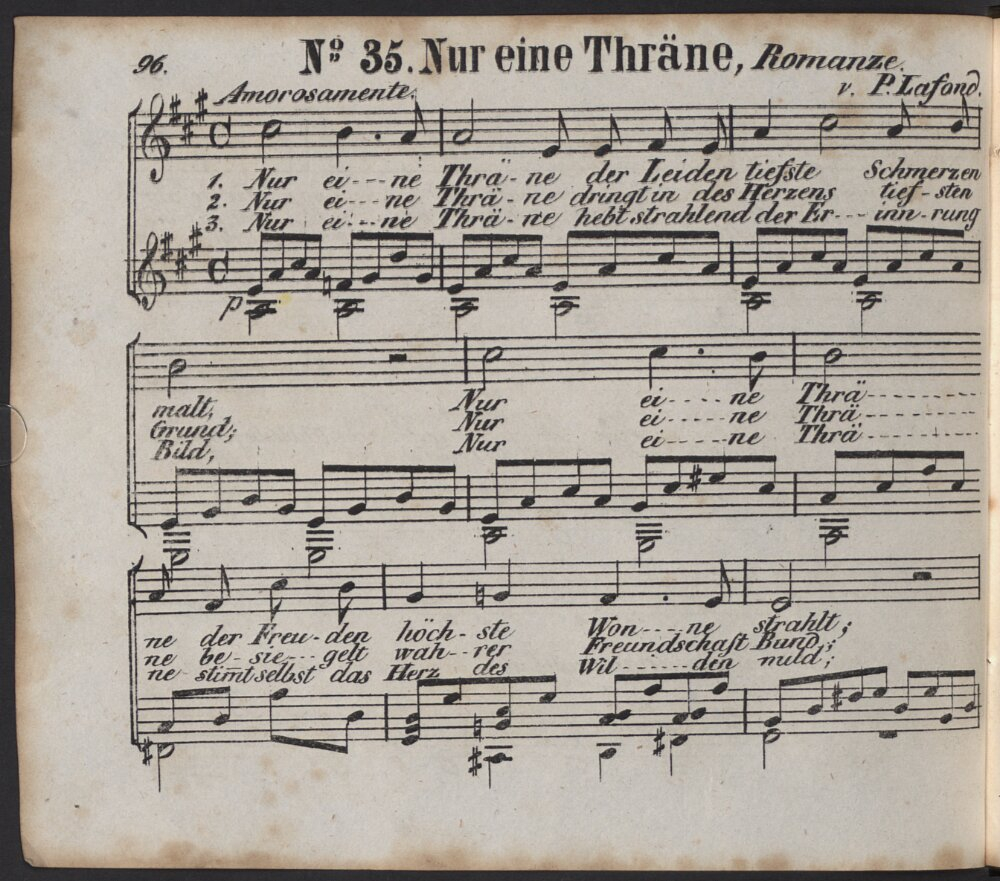 96. Nº 35. Nur eine Thräne, Romanze.
Amorosamente. v. P. Lafond.
1. Nur ei---ne Thrä-ne der Leiden tiefste Schmerzen
2. Nur ei---ne Thrä-ne dringt in des Herzens tief-sten
3. Nur ei---ne Thrä-ne hebt strahlend der Er---inn-rung
p
malt, Nur ei-----ne Thrä-----------
Grund; Nur ei-----ne Thrä-----------
Bild, Nur ei-----ne Thrä-----------
ne der Freu-den höch-ste Won----ne strahlt;
ne be-sie---gelt wah--rer Freundschaft Bund;
ne stimt selbst das Herz des Wil----den mild;